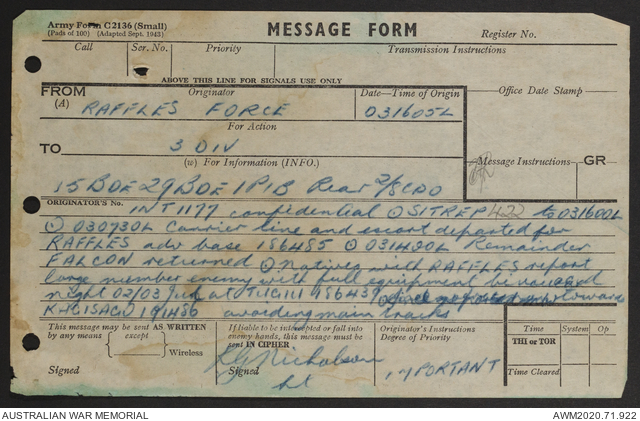 Army Form C2136 (Small)
(Pads of 100) (Adapted Sept. 1943)
MESSAGE FORM
Register No.
Call
Ser. No.
Priority
Transmission Instructions
ABOVE THIS LINE FOR SIGNALS USE ONLY
FROM
(A)
Originator
Date—Time of Origin
Office Date Stamp
RAFFLES FORCE
031605L
For Action
TO
3 DIV
(w) For Information (INFO.)
Message Instructions
GR
15 BDE 29 BDE 1 PIB Rear 2/8 CDO
ORIGINATOR'S No.
INT 1177 confidential ⊙ SITREP 422 to 031600L
⊙ 030730L Carrier line and escort departed for
RAFFLES adv base 186485 ⊙ 031400L Remainder
FALCON returned ⊙ Natives with RAFFLES report
large number enemy with full equipment
night 02/03 486439 towards
191486 avoiding main tracks
This message may be sent AS WRITTEN
by any means
except
Wireless
Signed
If liable to be intercepted or fall into
enemy hands, this message must be
sent IN CIPHER
Nicholson
Lt
Signed
Originator's Instructions
Degree of Priority
IMPORTANT
Time
System
Op
THI or TOR
Time Cleared
AUSTRALIAN WAR MEMORIAL
AWM2020.71.922